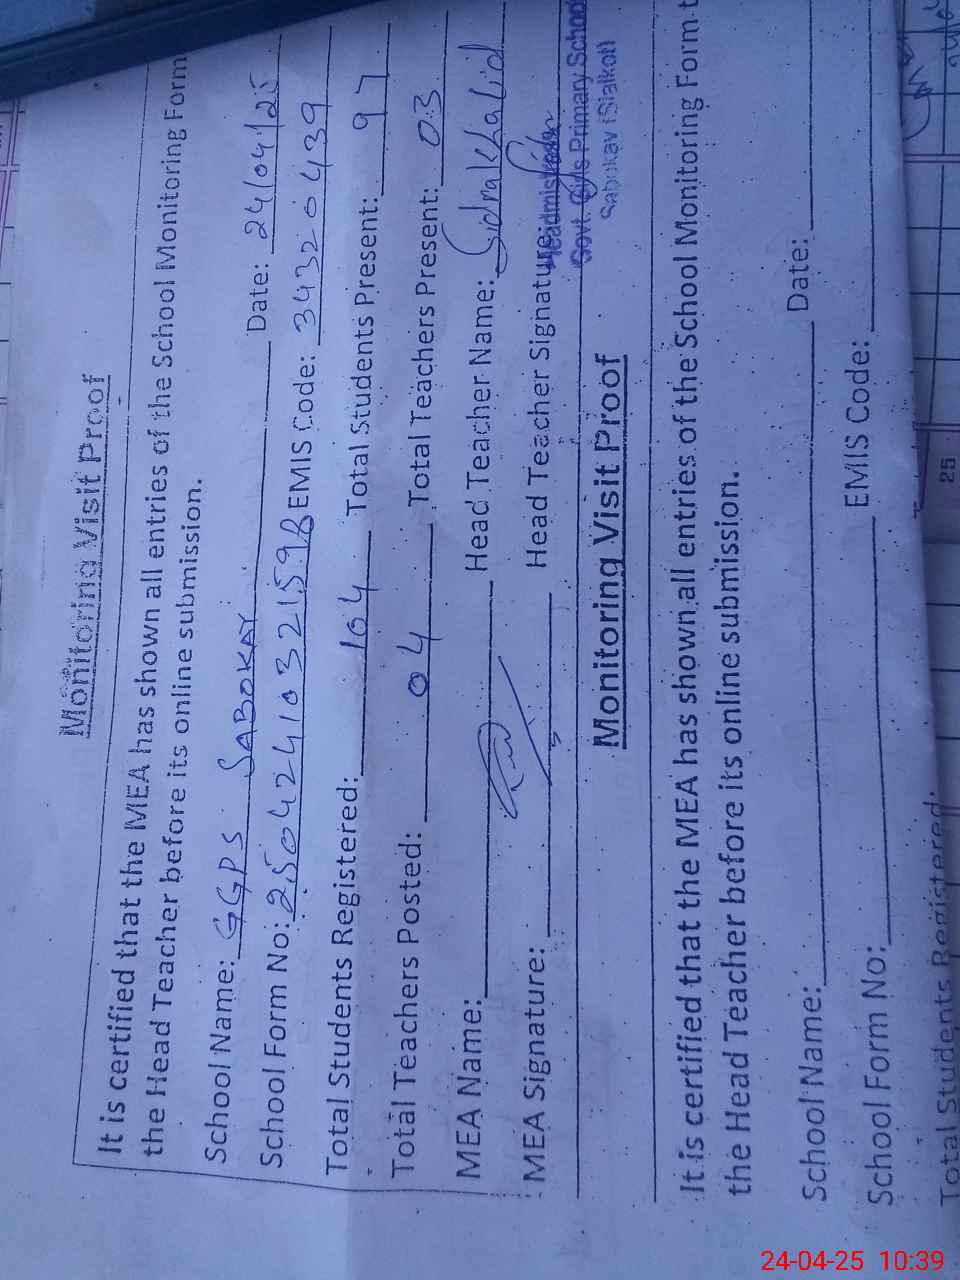 Monitoring Visit Proof
It is certified that the MEA has shown all entries of the School Monitoring Form
the Head Teacher before its online submission.
School Name: GGPS SABOKAY Date: 24/04/25
School Form No: 25042410321598 EMIS Code: 34320439
Total Students Registered: 104 Total Students Present: 97
Total Teachers Posted: 04 Total Teachers Present: 03
MEA Name: Head Teacher Name: Sidra Khalid
MEA Signature: Head Teacher Signature:
Headmistress
Govt. Girls Primary School
Sabokay (Sialkot)
Monitoring Visit Proof
It is certified that the MEA has shown all entries of the School Monitoring Form t
the Head Teacher before its online submission.
School Name: Date:
School Form No: EMIS Code:
Total Students Registered:
25
24-04-25 10:39